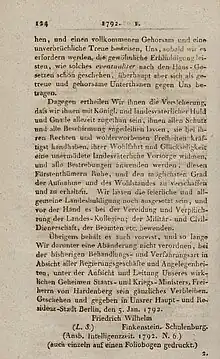 124 1792. 1.
hen, und einen vollkommenen Gehorsam und eine
unverbrüchliche Treue beweisen, Uns, sobald wir es
erfordern werden, die gewöhnliche Erbhuldigung leisten,
wie solches eventualiter nach den Haus-Gesetzen
schon geschehen, überhaupt aber sich als getreue
und gehorsame Unterthanen gegen Uns betragen.
Dagegen ertheilen Wir ihnen die Versicherung,
daß wir ihnen mit Königl. und landesväterlicher Huld
und Gnade allezeit zugethan seyn, ihnen allen Schutz
und alle Beschirmung angedeihen lassen, sie bei ihren
Rechten und wohlerworbenen Freiheiten kräftigst
handhaben, ihrer Wohlfahrt und Glückseligkeit
eine unermüdete landesväterliche Vorsorge widmen,
und alle Bestrebungen anwenden werden, diesen
Fürstenthümern Ruhe, und den möglichsten Grad
der Aufnahme und des Wohlstandes zu verschaffen
und zu erhalten. Wir lassen die feierliche und allgemeine
Landeshuldigung noch ausgesetzt seyn, und
vor der Hand es bei der Vereidung und Verpflichtung
der Landes-Kollegien, der Militär- und Civil-
Dienerschaft, der Beamten etc. bewenden.
Übrigens behält es auch vorerst, und so lange
Wir darunter eine Abänderung nicht verordnen, bei
der bisherigen Behandlungs- und Verfahrungsart in
Absicht aller Regierungsgeschäfte und Angelegenheiten,
unter der Aufsicht und Leitung Unseres wirklichen
Geheimen Staats- und Kriegs-Ministers, Freiherrn
von Hardenberg sein gänzliches Verbleiben.
Geschehen und gegeben in Unserer Haupt- und Residenz-Stadt
Berlin, den 5. Jan. 1792.
Friedrich Wilhelm
(L. S.) Finkenstein. Schulenburg.
(Ansb. Intelligenzzeit. 1792. N. 6.)
(auch einzeln auf einen Foliobogen gedruckt.)
2.